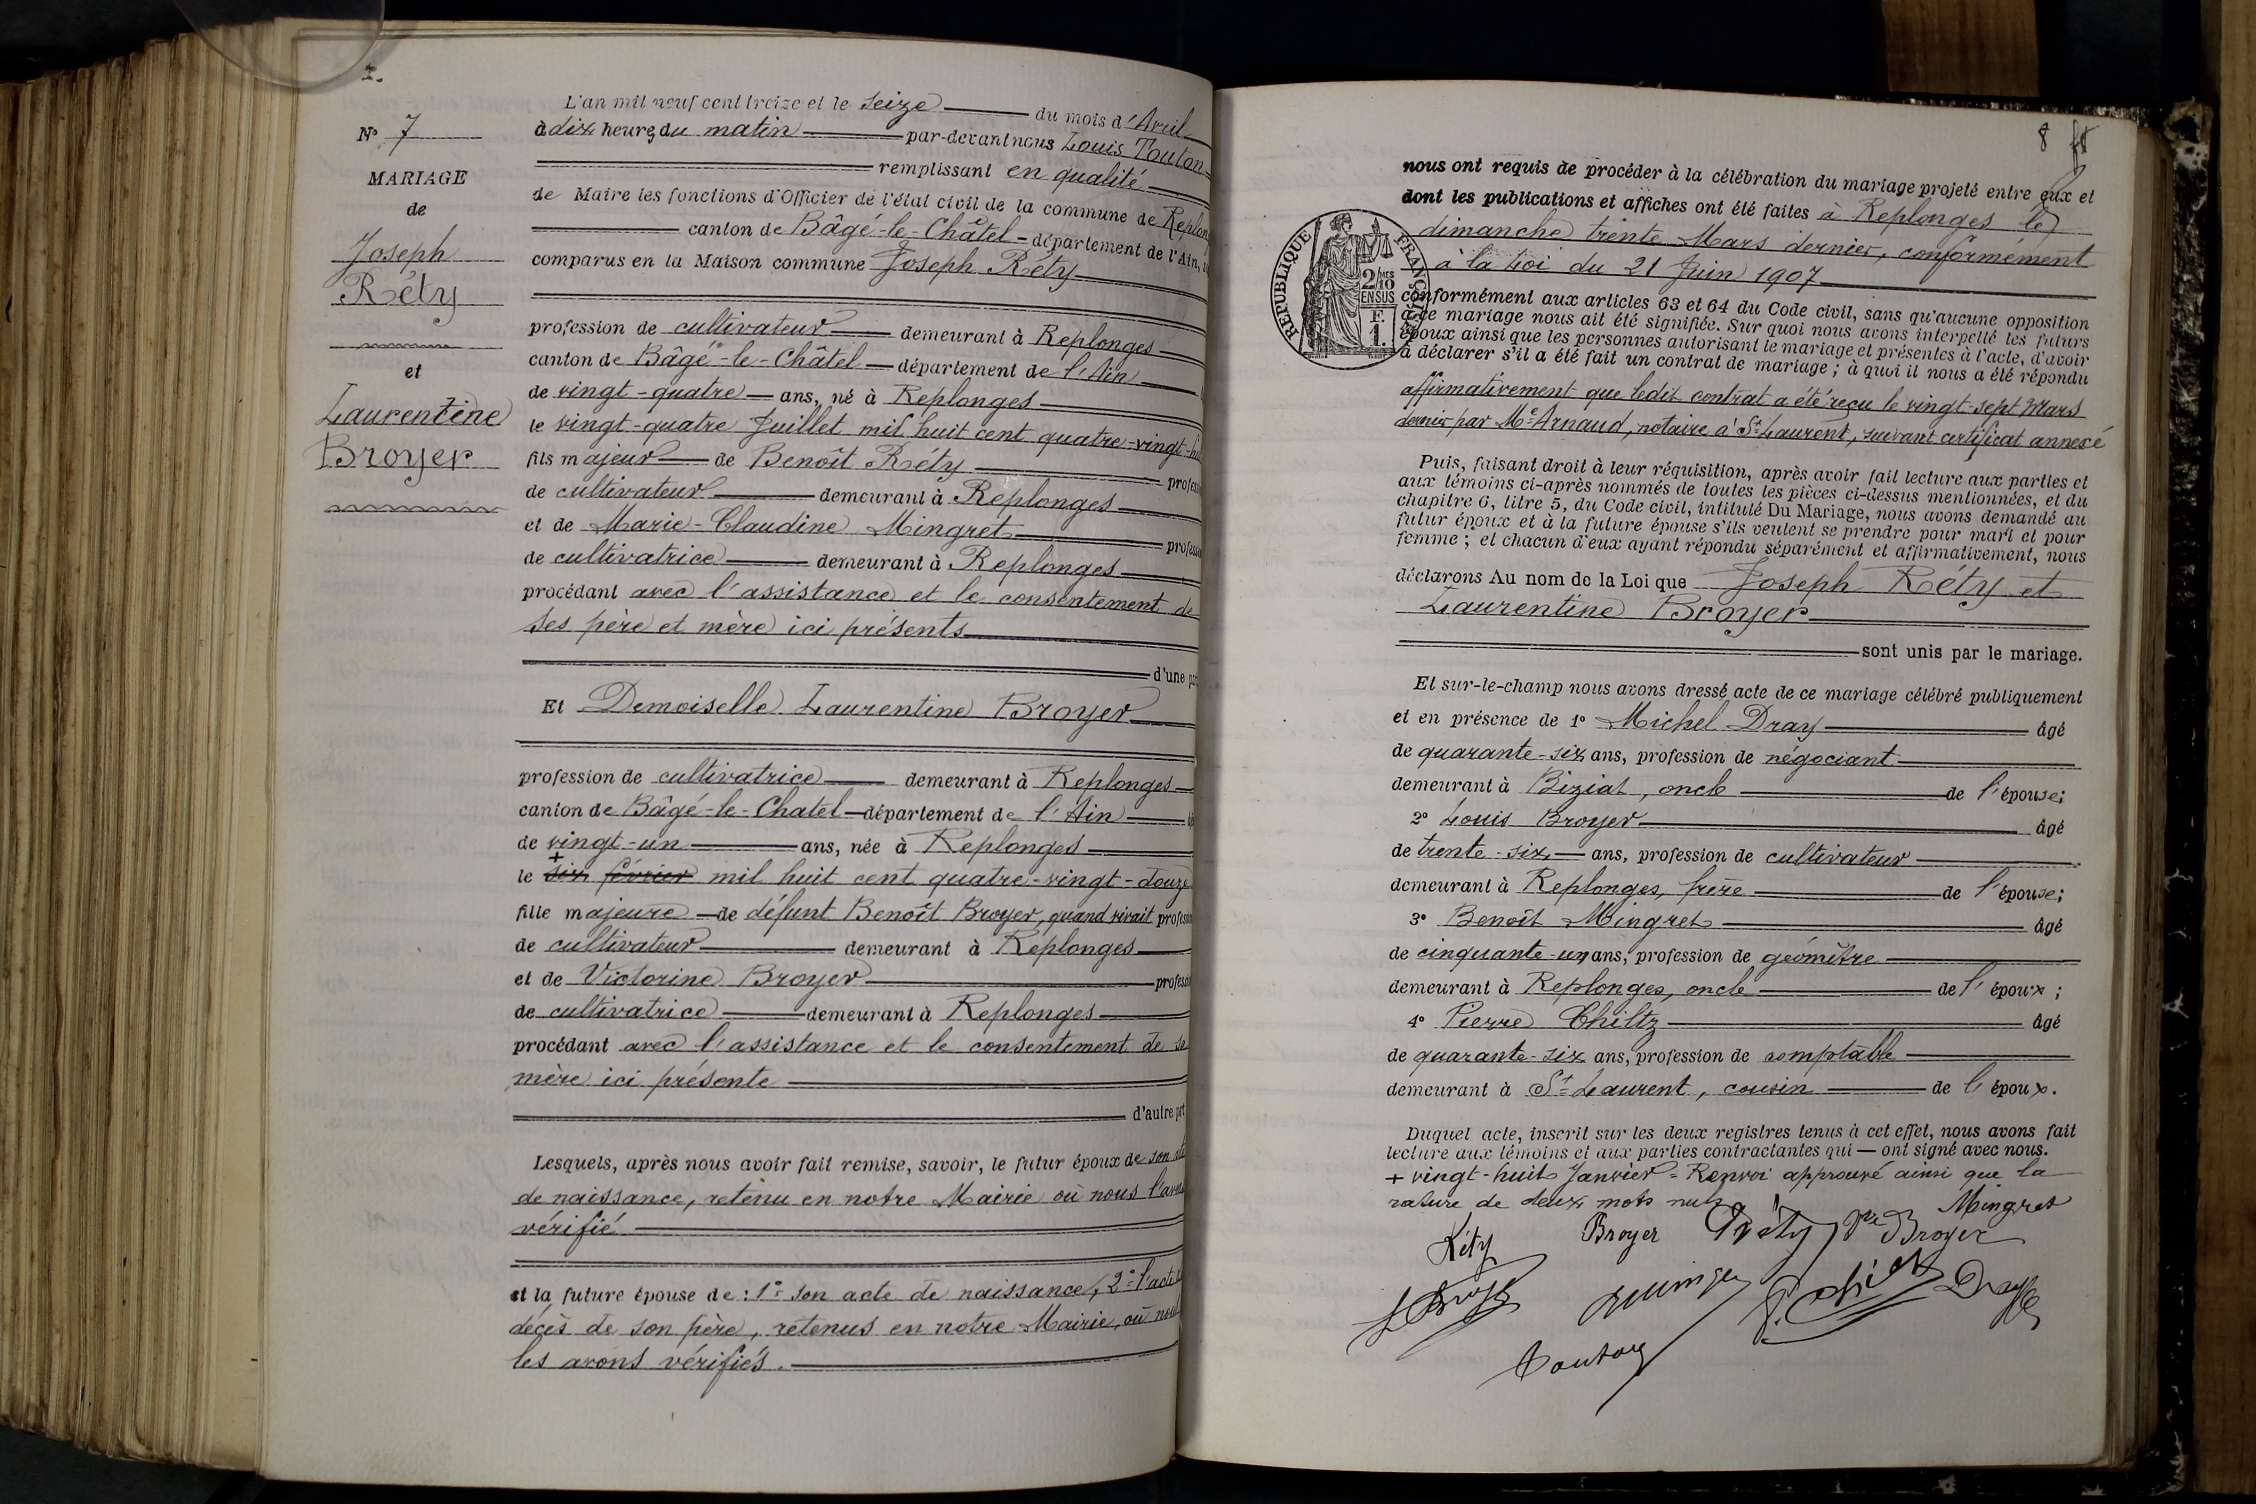 N° 7
MARIAGE
de
Joseph
Réty
et
Laurentine
Broyer
L'an mil neuf cent treize et le seize du mois d'Avril
à dix heures du matin par-devant nous Louis Touton
remplissant en qualité
de Maire les fonctions d'Officier de l'état civil de la commune de Replon
canton de Bâgé-le-Châtel département de l'Ain,
comparus en la Maison commune Joseph Réty
profession de cultivateur demeurant à Replonges
canton de Bâgé-le-Châtel département de l'Ain
de vingt-quatre ans, né à Replonges
le vingt-quatre Juillet mil huit cent quatre-vingt-hu
fils majeur de Benoît Réty profess
de cultivateur demeurant à Replonges
et de Marie-Claudine Mingret profession
de cultivatrice demeurant à Replonges
procédant avec l'assistance et le consentement de
ses père et mère ici présents
d'une par
Et Demoiselle Laurentine Broyer
profession de cultivatrice demeurant à Replonges
canton de Bâgé-le-Chatel département de l'Ain
de vingt-un ans, née à Replonges
+
le six février mil huit cent quatre-vingt-douze
fille majeure de défunt Benoît Broyer, quand vivait profession
de cultivateur demeurant à Replonges
et de Victorine Broyer profession
de cultivatrice demeurant à Replonges
procédant avec l'assistance et le consentement de sa
mère ici présente
d'autre part
Lesquels, après nous avoir fait remise, savoir, le futur époux de son
de naissance, retenu en notre Mairie où nous l'avons
vérifié
et la future épouse de : 1° son acte de naissance, 2° l'acte
décès de son père, retenus en notre Mairie, où nous
les avons vérifiés.
8
nous ont requis de procéder à la célébration du mariage projeté entre eux et
dont les publications et affiches ont été faites à Replonges le
dimanche trente Mars dernier, conformément
à la Loi du 21 Juin 1907
RÉPUBLIQUE FRANÇAISE
2/10 MES
EN SUS
F.
1.
conformément aux articles 63 et 64 du Code civil, sans qu'aucune opposition
à ce mariage nous ait été signifiée. Sur quoi nous avons interpellé les futurs
époux ainsi que les personnes autorisant le mariage et présentes à l'acte, d'avoir
à déclarer s'il a été fait un contrat de mariage ; à quoi il nous a été répondu
affirmativement que ledit contrat a été reçu le vingt-sept Mars
dernier par Me Arnaud, notaire à St Laurent, suivant certificat annexé
Puis, faisant droit à leur réquisition, après avoir fait lecture aux parties et
aux témoins ci-après nommés de toutes les pièces ci-dessus mentionnées, et du
chapitre 6, titre 5, du Code civil, intitulé Du Mariage, nous avons demandé au
futur époux et à la future épouse s'ils veulent se prendre pour mari et pour
femme ; et chacun d'eux ayant répondu séparément et affirmativement, nous
déclarons Au nom de la Loi que Joseph Réty et
Laurentine Broyer
sont unis par le mariage.
Et sur-le-champ nous avons dressé acte de ce mariage célébré publiquement
et en présence de 1° Michel Dray âgé
de quarante-six ans, profession de négociant
demeurant à Biziat, oncle de l'épouse;
2° Louis Broyer âgé
de trente-six ans, profession de cultivateur
demeurant à Replonges, frère de l'épouse;
3° Benoît Mingret âgé
de cinquante-un ans, profession de géomètre
demeurant à Replonges, oncle de l'époux ;
4° Pierre Chiltz âgé
de quarante-six ans, profession de comptable
demeurant à St Laurent, cousin de l'époux.
Duquel acte, inscrit sur les deux registres tenus à cet effet, nous avons fait
lecture aux témoins et aux parties contractantes qui — ont signé avec nous.
+ vingt-huit Janvier = Renvoi approuvé ainsi que la
rature de deux mots nuls
Mingret
Réty Broyer Réty Broyer
L Broyer Mingret Dray
Touton